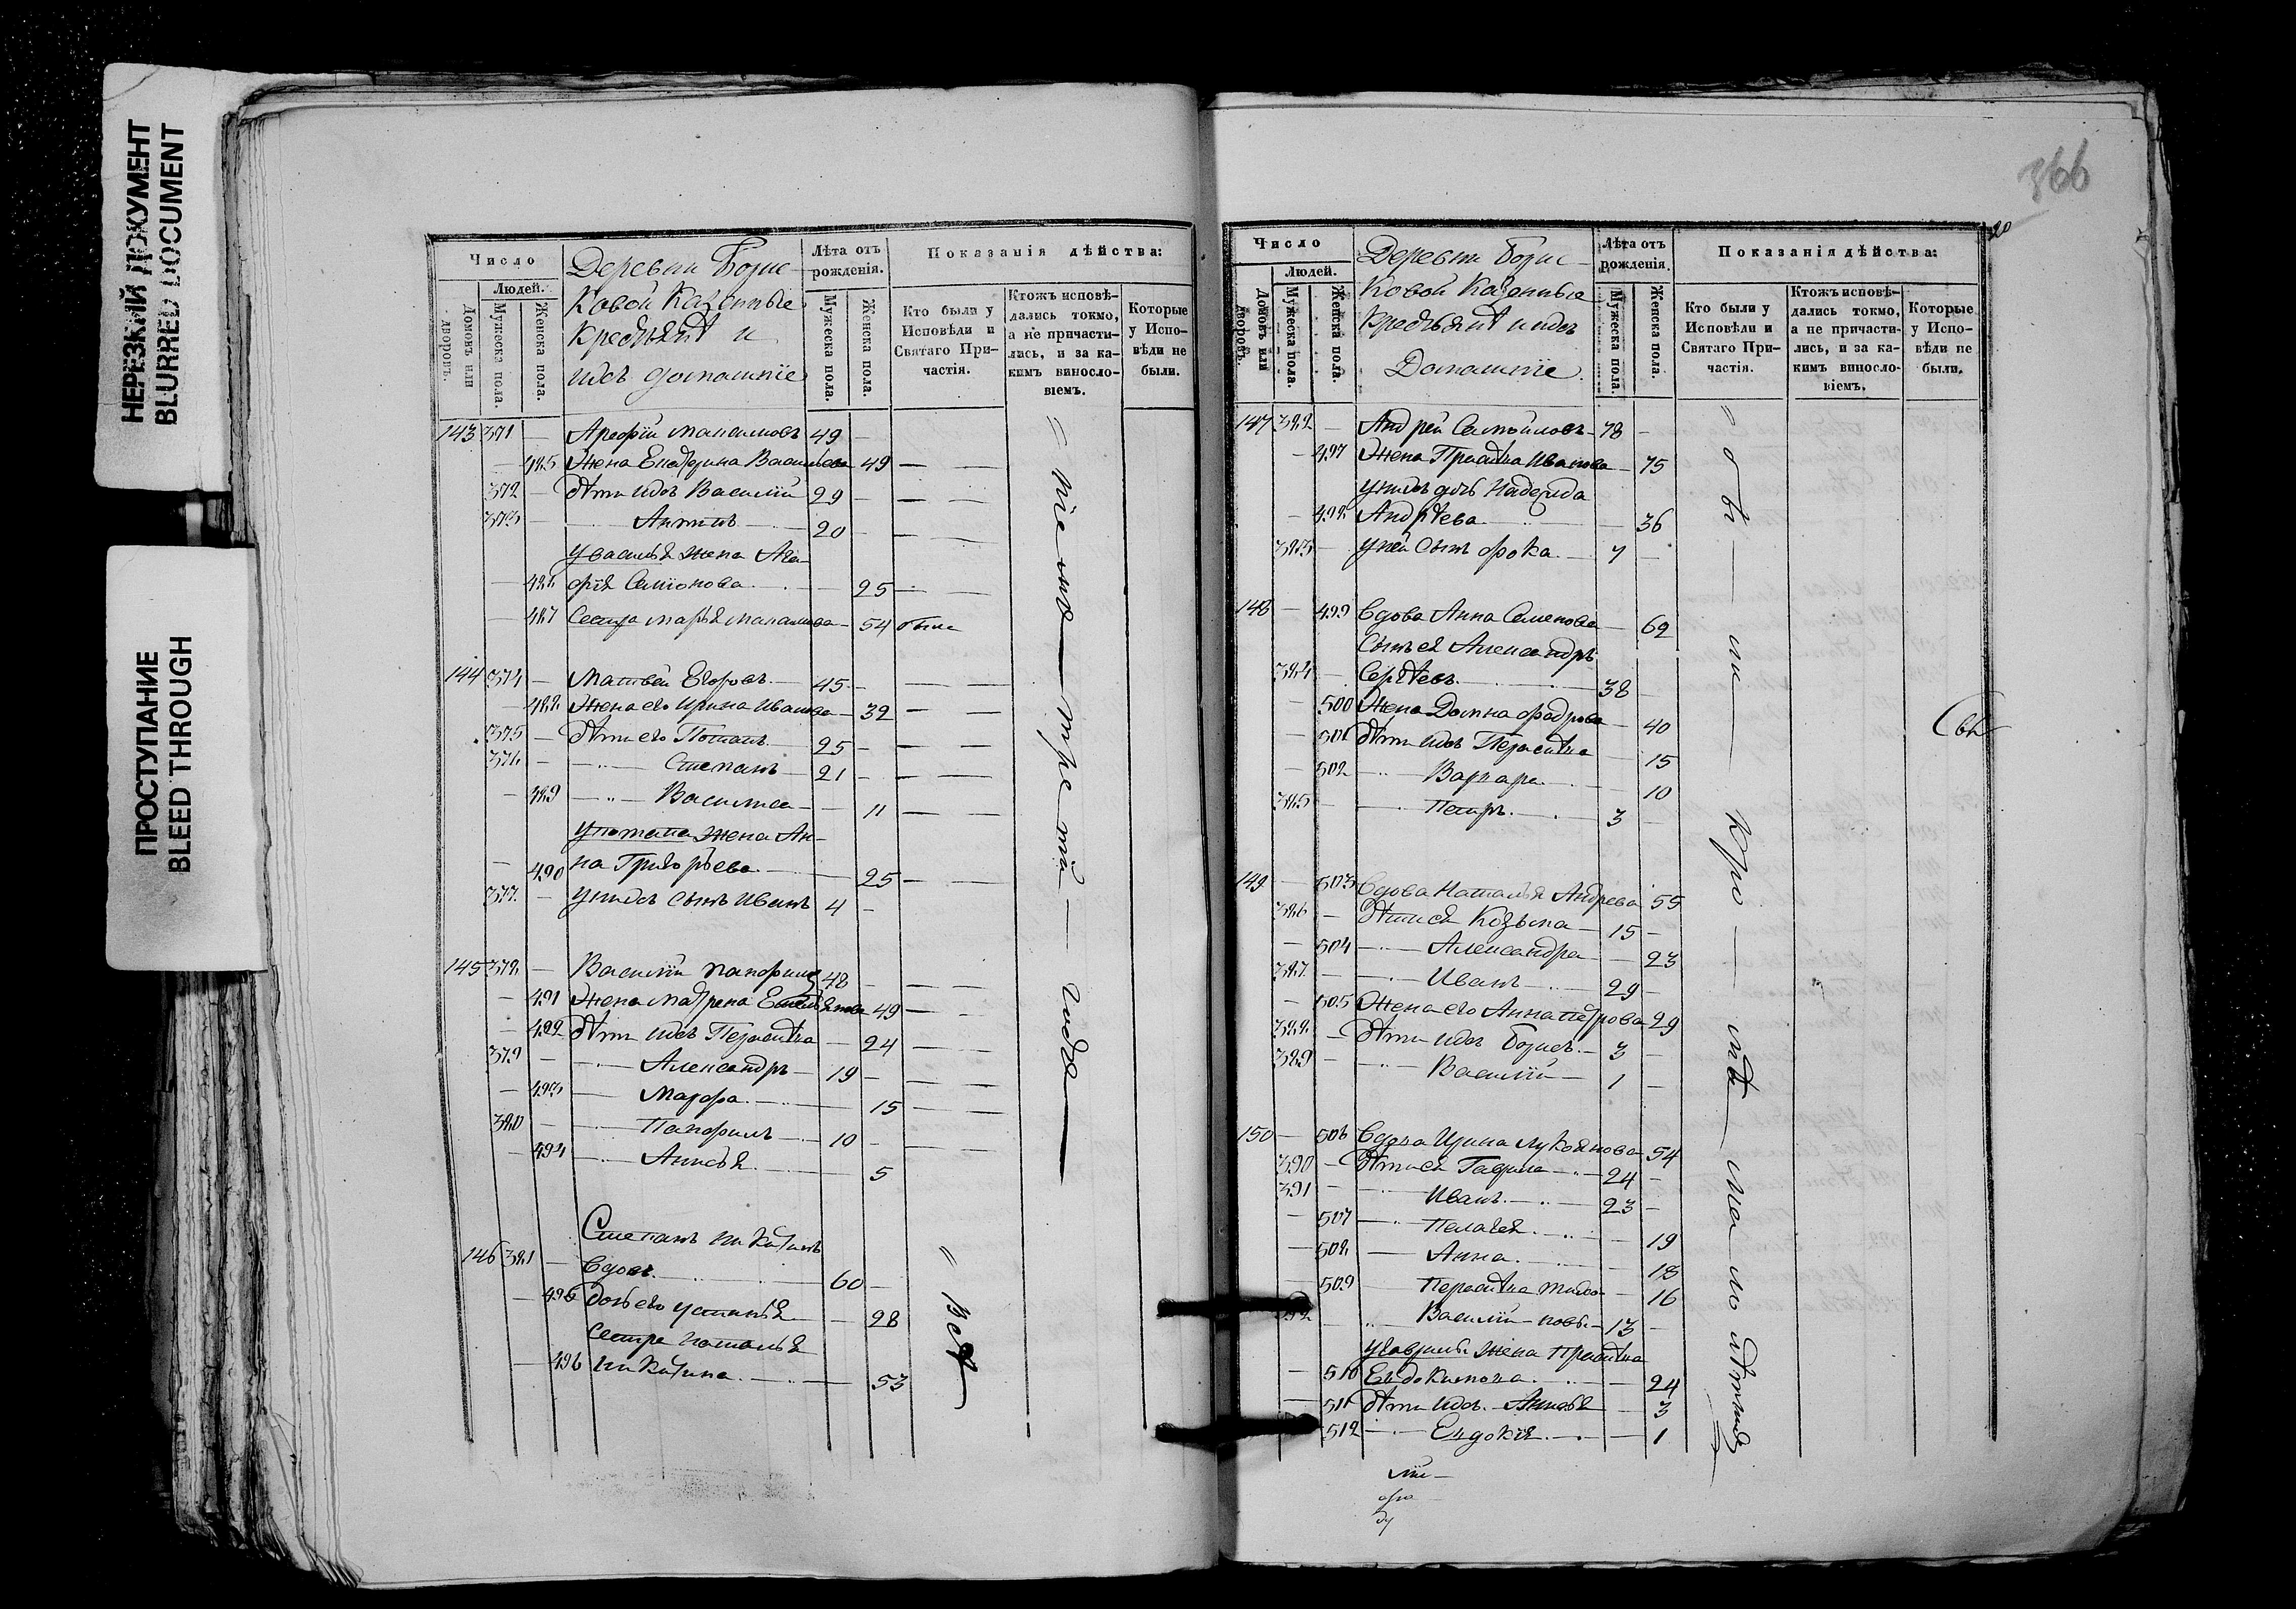 НЕРЕЗКИЙ ДОКУМЕНТ
BLURRED DOCUMENT
ПРОСТУПАНИЕ
BLEED THROUGH
Число
Людей.
Домовъ или дворовъ.
Мужеска пола.
Женска пола.
Деревни Борис-
ковой Казенные
Крестьяне и
ихъ домашніе
Лѣта отъ рожденія.
Мужеска пола.
Женска пола.
Показанія дѣйства:
Кто были у Исповѣди и Святаго При-частія.
Ктожъ исповѣ-дались токмо, а не причасти-лись, и за ка-кимъ винос-ло-віемъ.
Которые у Испо-вѣди не были.
143 371 — Арефій Максимовъ 49 —
— 485 Жена Екатерина Васильева 49 — —
372 — Дѣти ихъ Василій 29 — — —
373 — Антипъ 20 — — —
У Василья жена Ага-
— 486 фія Семіонова — 25 — —
— 487 Сестра Марья Максимова — 54 были
144 374 — Матвей Егоровъ 45 — — —
— 488 Жена его Ирина Иванова — 39 — —
375 — Дѣти его Потапъ 25 — — —
376 — Степанъ 21 — — —
— 489 Василиса — 11 — —
У Потапа жена Ан-
— 490 на Григорьева — 25 — —
377 — У нихъ сынъ Иванъ 4 —
145 378 — Василій Панфиловъ 48 — — —
— 491 Жена Матрена Емельянова 49 — —
— 492 Дѣти ихъ Параскева — 24 — —
379 — Александръ 19 — — —
— 493 Марфа — 15 — —
380 — Панфилъ 10 — — —
— 494 Анисья — 5
Степанъ Никитинъ
146 381 — Вдовъ 60 —
— 495 Дочь его Устинья — 28
Сестра Наталья
— 496 Никитина — 53
366
20
Число
Людей.
Домовъ или дворовъ.
Мужеска пола.
Женска пола.
Деревни Борис-
ковой Казенные
Крестьяне и ихъ
Домашніе
Лѣта отъ рожденія.
Мужеска пола.
Женска пола.
Показанія дѣйства:
Кто были у Исповѣди и Святаго При-частія.
Ктожъ исповѣ-дались токмо, а не причасти-лись, и за ка-кимъ винос-ло-віемъ.
Которые у Испо-вѣди не были.
147 382 — Андрей Самойловъ 78 —
— 497 Жена Прасковья Иванова — 75
У нихъ дочь Надежда
— 498 Андрѣева — 36
383 — У ней сынъ Фока 7 —
148 — 499 Вдова Анна Семенова — 69
Сынъ ея Александръ
384 — Сергѣевъ 38 —
— 500 Жена Домна Федорова — 40
— 501 Дѣти ихъ Параскева — 15
— 502 Варвара — 10
385 — Петръ 3 —
149 — 503 Вдова Наталья Андреева 55
386 — Дѣти ея Козьма 15 —
— 504 Александра — 23
387 — Иванъ 29 —
— 505 Жена его Анна Петрова 29
388 — Дѣти ихъ Борисъ 3 —
389 — Василій 1 —
150 — 506 Вдова Ирина Лукоянова 54
390 — Дѣти ея Гаврила 24 —
391 — Иванъ 23 —
— 507 Пелагея — 19
— 508 Анна — 18
— 509 Параскева — 16
392 Василій 13 —
У Гаврилы жена Прасковья
— 510 Евдокимова — 24
— 511 Дѣти ихъ Анисья — 3
— 512 Евдокія — 1